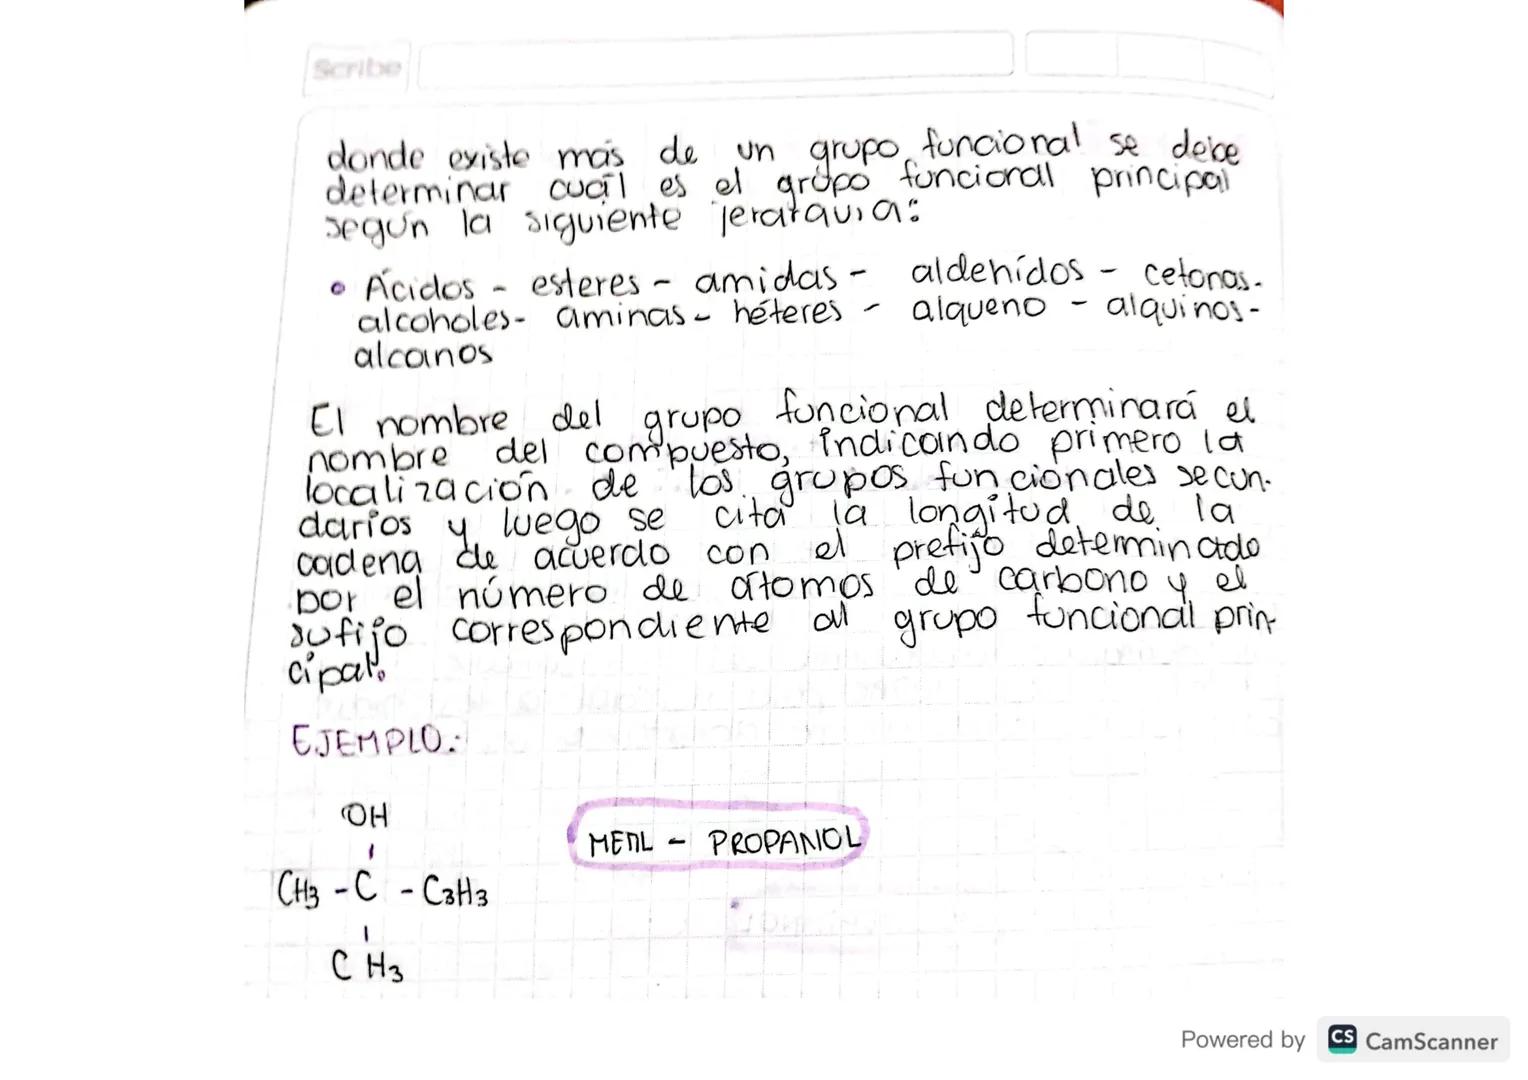 Scribe
donde existe más de un grupo funcional se debe
determinar cuál es el grupo funcional principal
según la siguiente jerarquía:
• Ácidos - esteres - amidas - aldehídos - cetonas-
alcoholes- aminas - héteres - alqueno - alquinos-
alcanos
El nombre del grupo funcional determinará el
nombre del compuesto, indicando primero la
localización de los grupos funcionales secun-
darios y luego se cita la longitud de la
cadena de acuerdo con el prefijo determinado
por el número de átomos de carbono y el
sufijo correspondiente al grupo funcional prin-
cipal.
EJEMPLO:
OH
METIL - PROPANOL
CH3 - C - C3H3
CH3
Powered by CS CamScanner